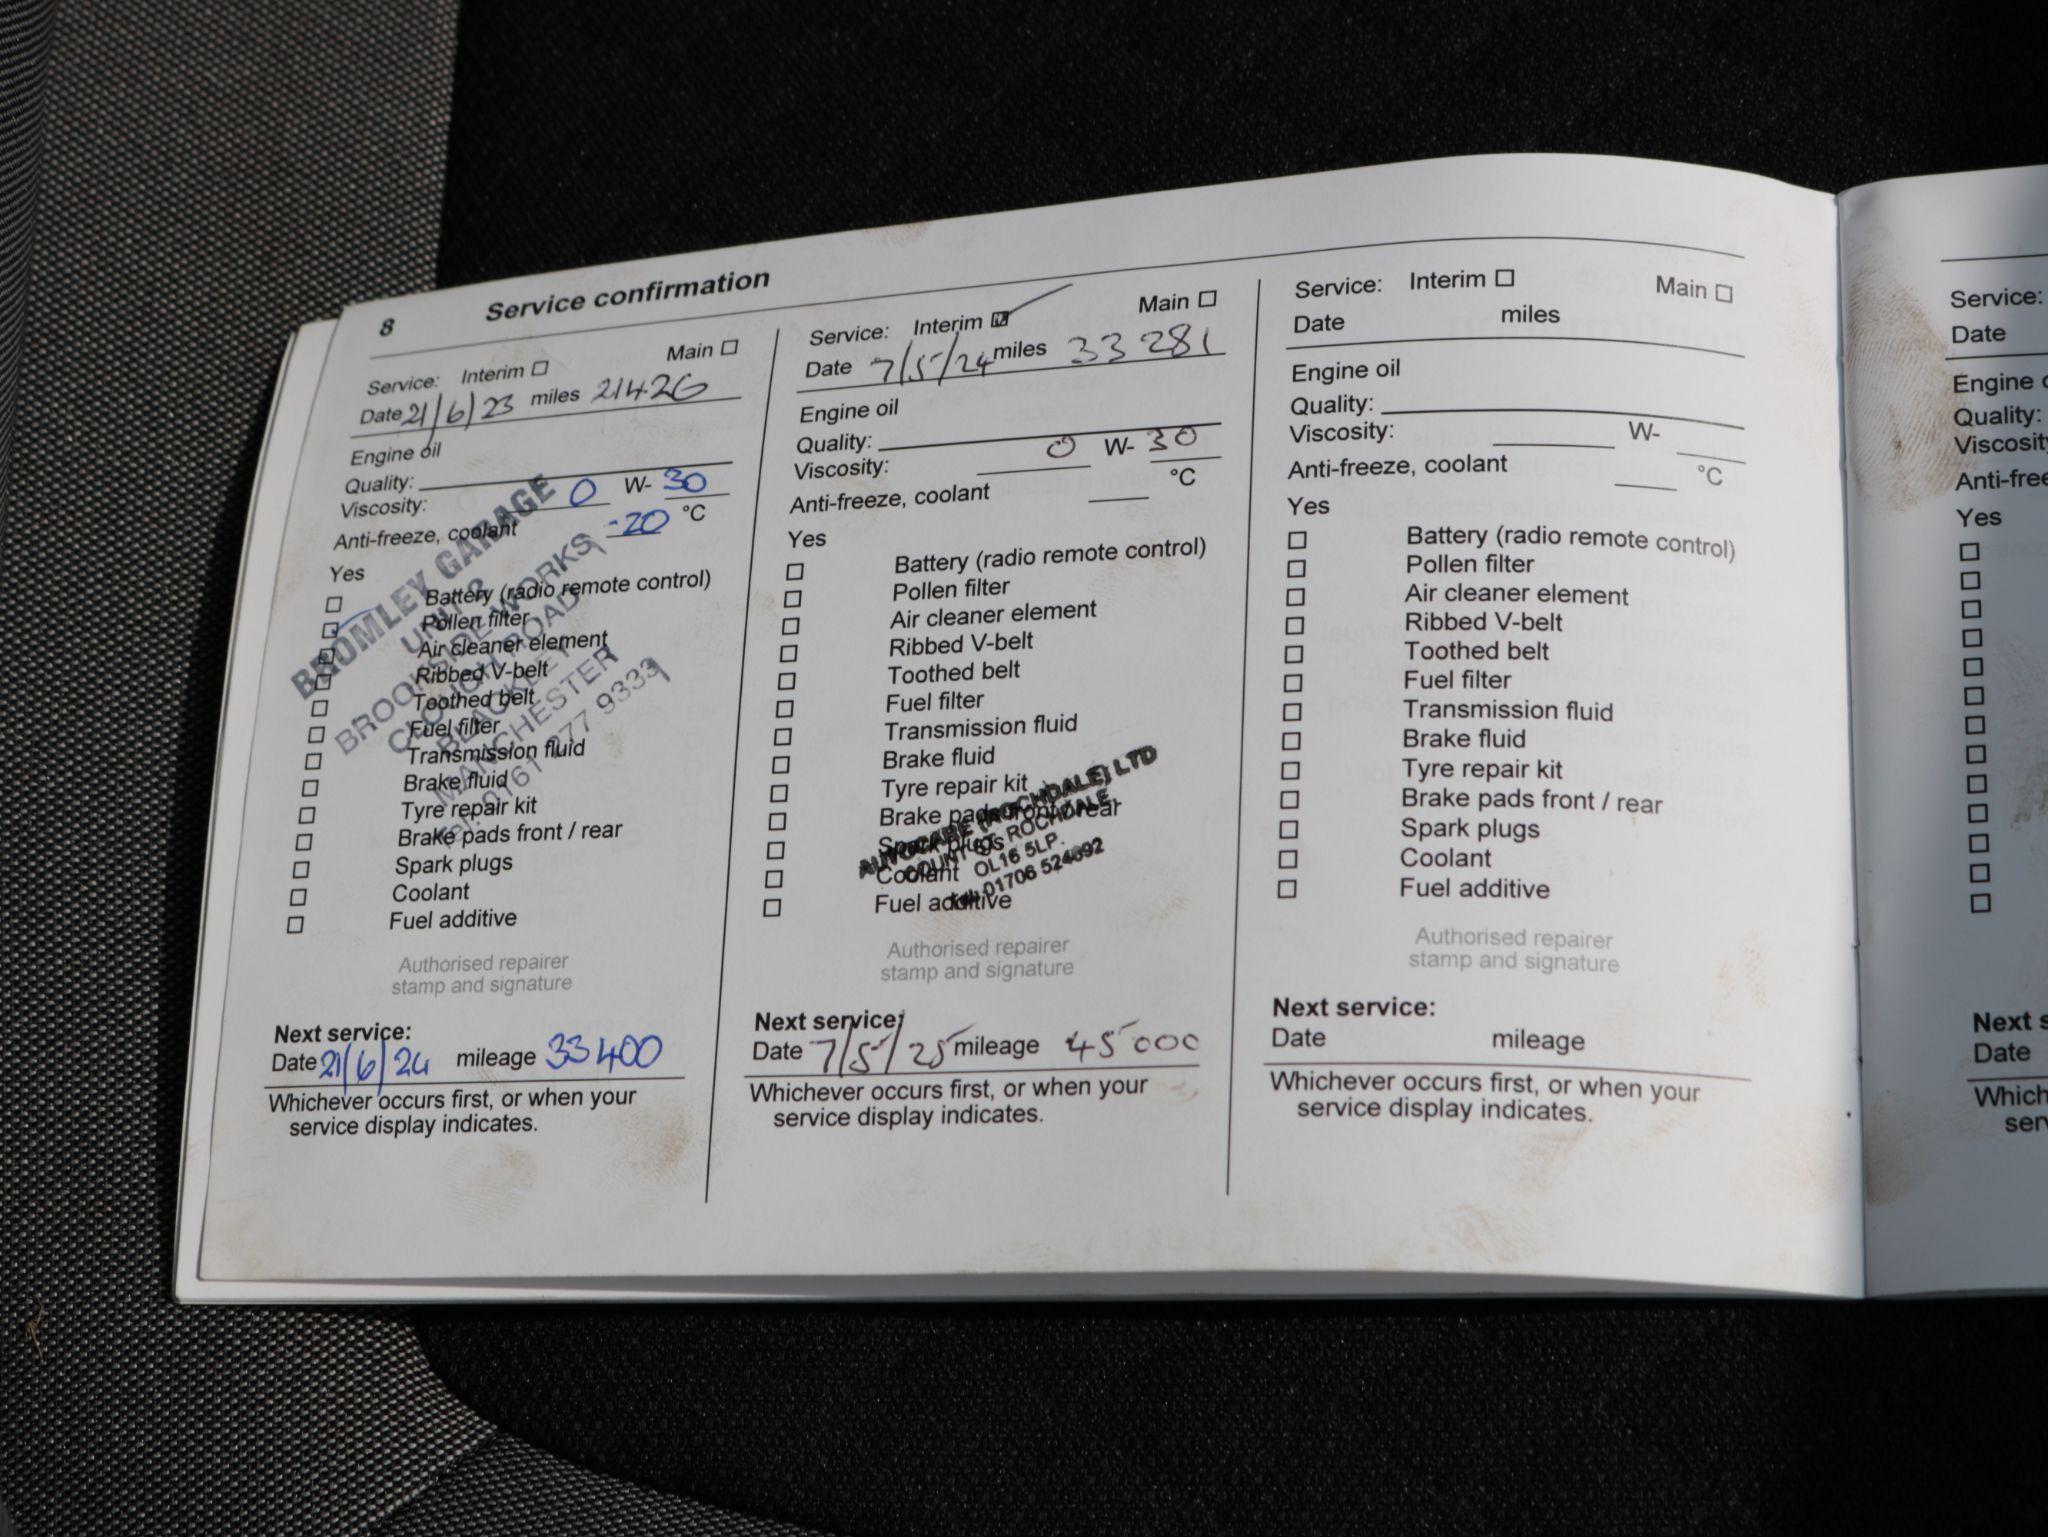 8 Service confirmation
Service: Interim ☐ Main ☐
Date 21/6/23 miles 21426
Engine oil
Quality:
Viscosity: 0 W- 30
Anti-freeze, coolant -20 °C
Yes
☐ Battery (radio remote control)
☑ Pollen filter
☐ Air cleaner element
☐ Ribbed V-belt
☐ Toothed belt
☐ Fuel filter
☐ Transmission fluid
☐ Brake fluid
☐ Tyre repair kit
☐ Brake pads front / rear
☐ Spark plugs
☐ Coolant
☐ Fuel additive
BROMLEY GARAGE
UNIT 2
BROOKSIDE WORKS
CLOUGH ROAD
BLACKLEY
MANCHESTER
Tel: 0161 277 9333
Authorised repairer
stamp and signature
Next service:
Date 21/6/24 mileage 33400
Whichever occurs first, or when your
service display indicates.
Service: Interim ☑ Main ☐
Date 7/5/24 miles 33281
Engine oil
Quality:
Viscosity: 0 W- 30
Anti-freeze, coolant °C
Yes
☐ Battery (radio remote control)
☐ Pollen filter
☐ Air cleaner element
☐ Ribbed V-belt
☐ Toothed belt
☐ Fuel filter
☐ Transmission fluid
☐ Brake fluid
☐ Tyre repair kit
☐ Brake pads front / rear
☐ Spark plugs
☐ Coolant
☐ Fuel additive
AUTOCARE (ROCHDALE) LTD
COUNT ST. ROCHDALE
OL16 5LP.
01706 524692
Authorised repairer
stamp and signature
Next service:
Date 7/5/25 mileage 45000
Whichever occurs first, or when your
service display indicates.
Service: Interim ☐ Main ☐
Date miles
Engine oil
Quality:
Viscosity: W-
Anti-freeze, coolant °C
Yes
☐ Battery (radio remote control)
☐ Pollen filter
☐ Air cleaner element
☐ Ribbed V-belt
☐ Toothed belt
☐ Fuel filter
☐ Transmission fluid
☐ Brake fluid
☐ Tyre repair kit
☐ Brake pads front / rear
☐ Spark plugs
☐ Coolant
☐ Fuel additive
Authorised repairer
stamp and signature
Next service:
Date mileage
Whichever occurs first, or when your
service display indicates.
Service:
Date
Engine
Quality:
Viscosity
Anti-free
Yes
Next s
Date
Which
ser